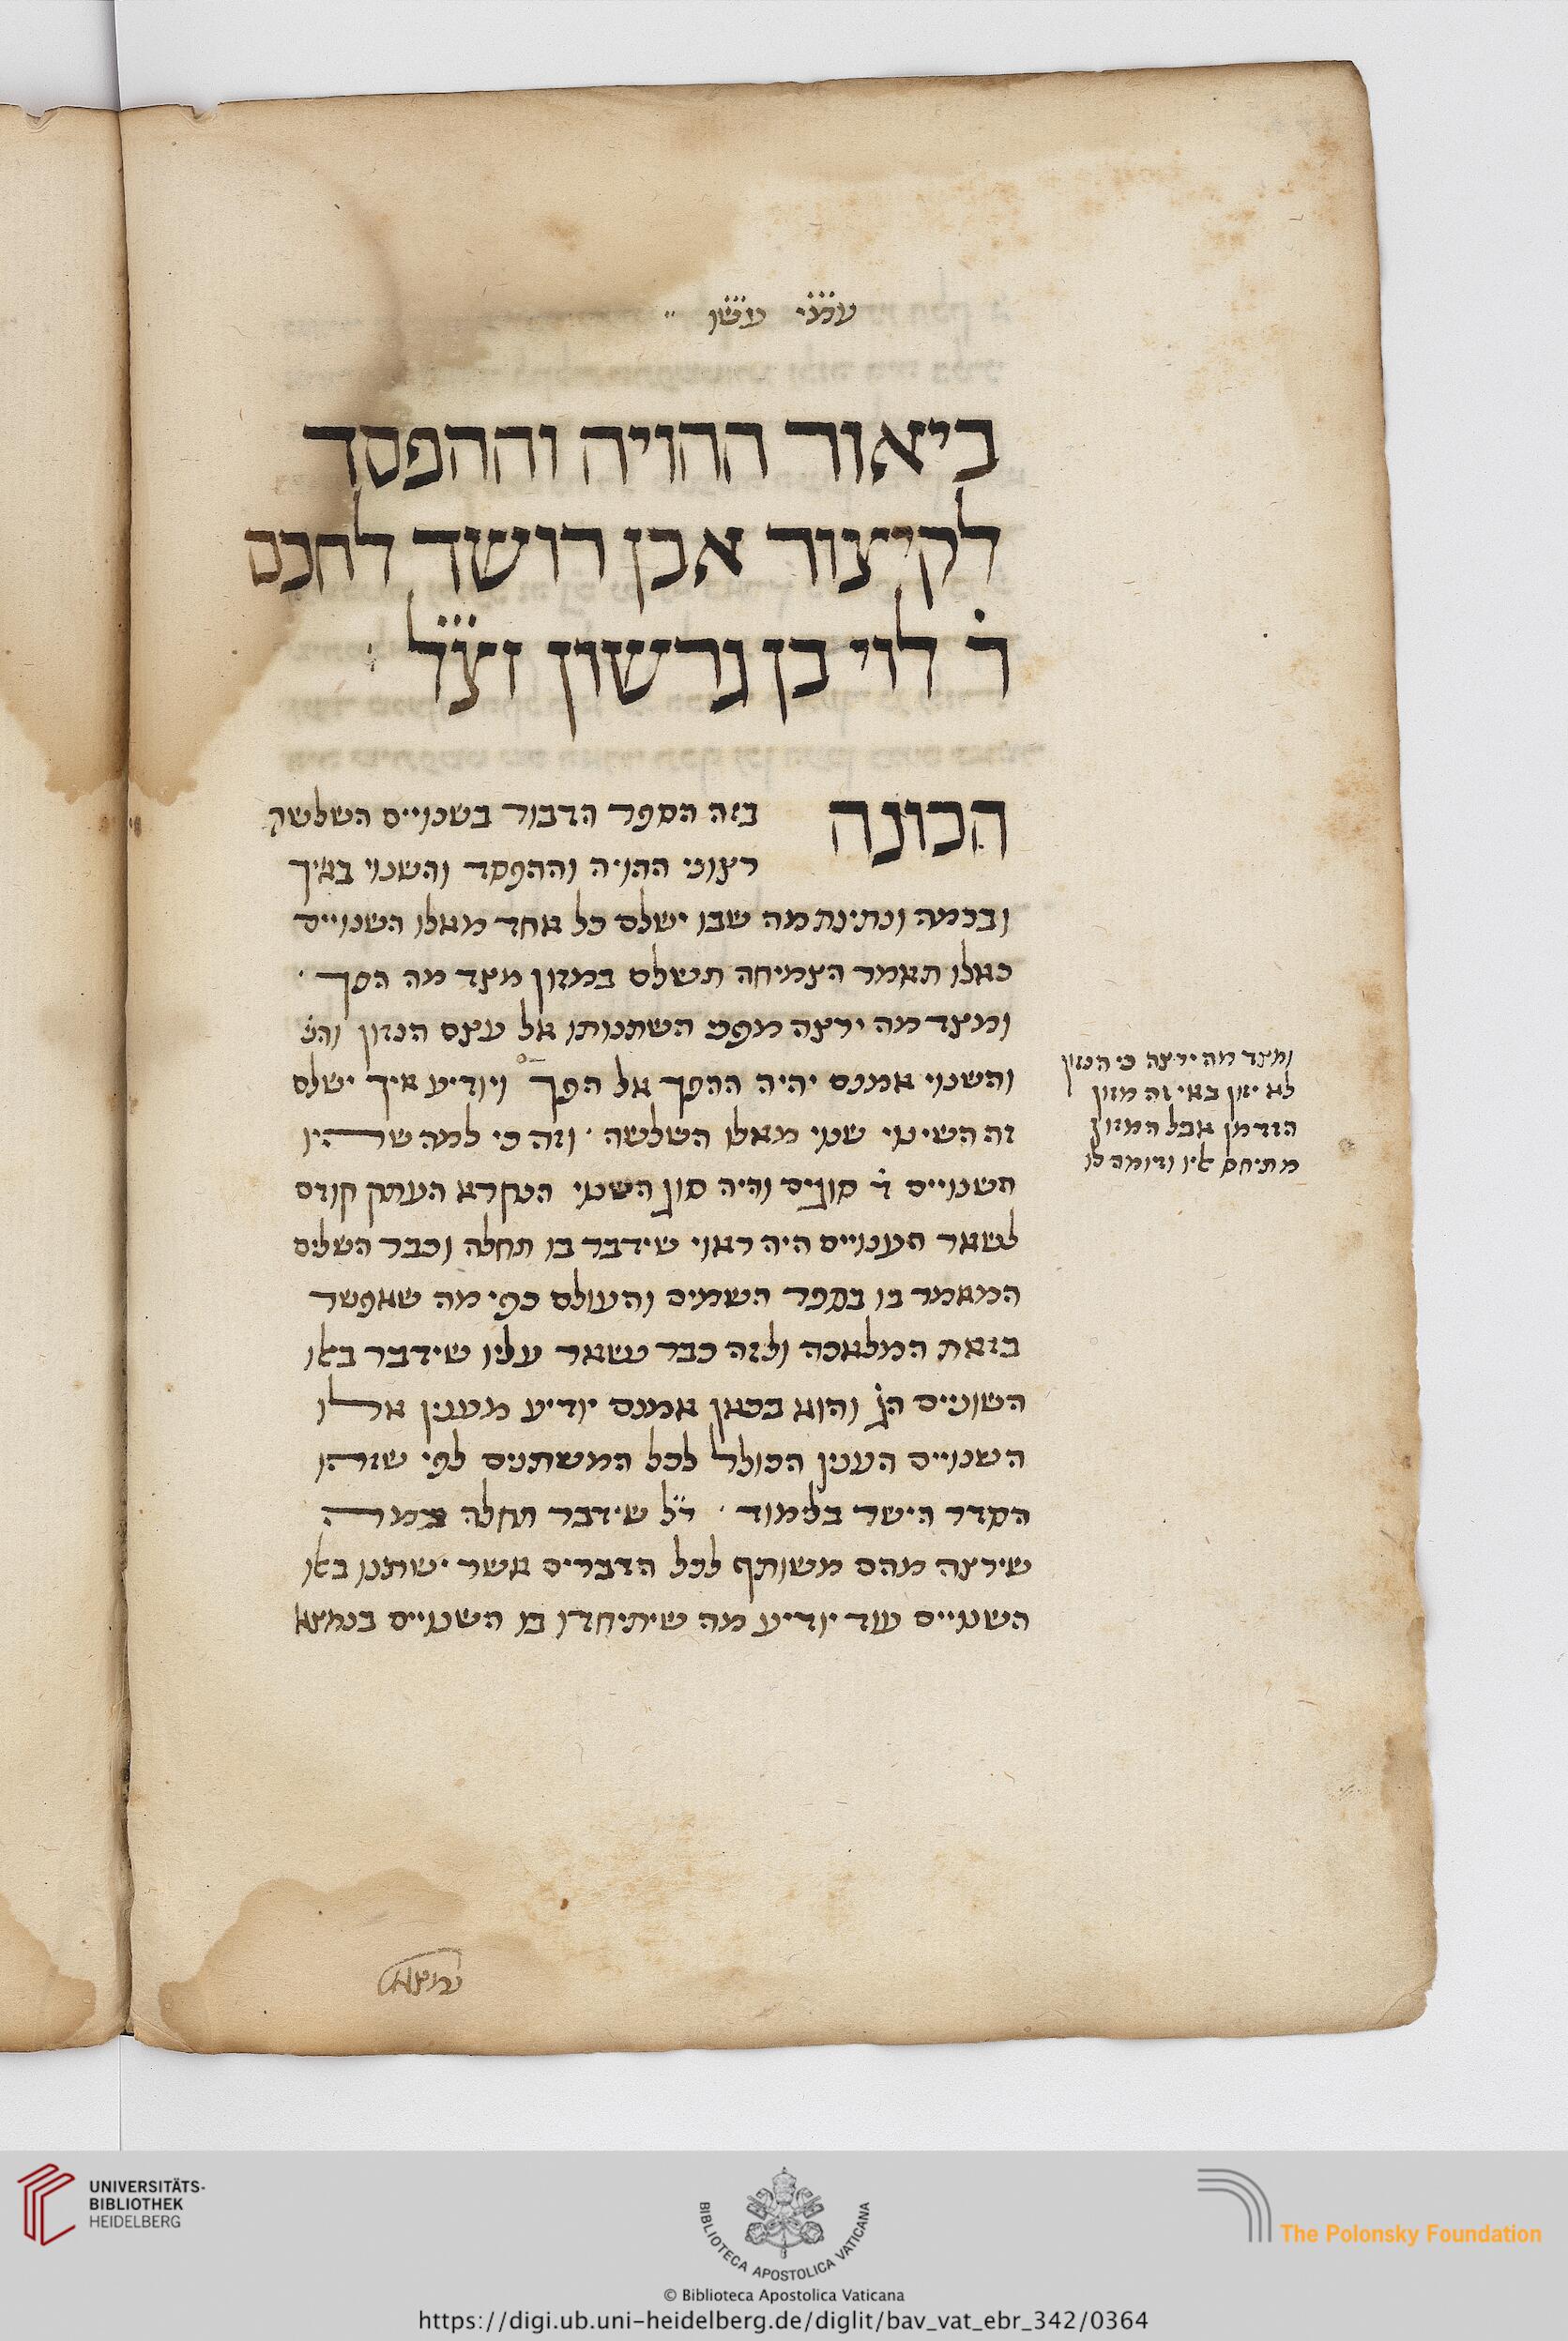 עמ״י עש״ו
ביאור ההויה וההפסד
לקיצור אבן רושד לחכם
ר׳ לוי בן גרשון זצ״ל
הכונה בזה הספר הדבור בשנויים השלשה
רצוני ההויה וההפסד והשנוי באיך
ובכמה ונתינת מה שבו ישלם כל אחד מאלו השנויים
כאלו תאמר הצמיחה תשלם במזון מצד מה הפך
ומצד מה ירצה מפני השתנותו אל עצם הנזון והנ׳
והשנוי אמנם יהיה ההפך אל הפך ויודיע איך ישלם
זה השינוי שנוי מאלו השלשה וזה כי למה שהיו
השנויים ד׳ סוגים והיה סוג השנוי הנקרא העתק קודם
לשאר השנויים היה ראוי שידבר בו תחלה וכבר השלים
המאמר בו בספר השמים והעולם כפי מה שאפשר
בזאת המלאכה ולזה כבר נשאר עליו שידבר באלו
השונים הג׳ והוא בכאן אמנם יודיע מענין אלו
השנויים הענין הכולל לכל המשתנים לפי שזהו
הסדר הישר בלימוד ר״ל שידבר תחלה במה
שירצה מהם משותף לכל הדברים אשר ישתנו באלו
השנויים עוד יודיע מה שיתיחדו בו השנויים בנמצא
ומצד מה ירצה כי הנזון
לא יזון באי זה מזון
הזדמן אבל המזון
מתיחס אליו ודומה לו
UNIVERSITÄTS-
BIBLIOTHEK
HEIDELBERG
BIBLIOTECA APOSTOLICA VATICANA
The Polonsky Foundation
© Biblioteca Apostolica Vaticana
https://digi.ub.uni-heidelberg.de/diglit/bav_vat_ebr_342/0364